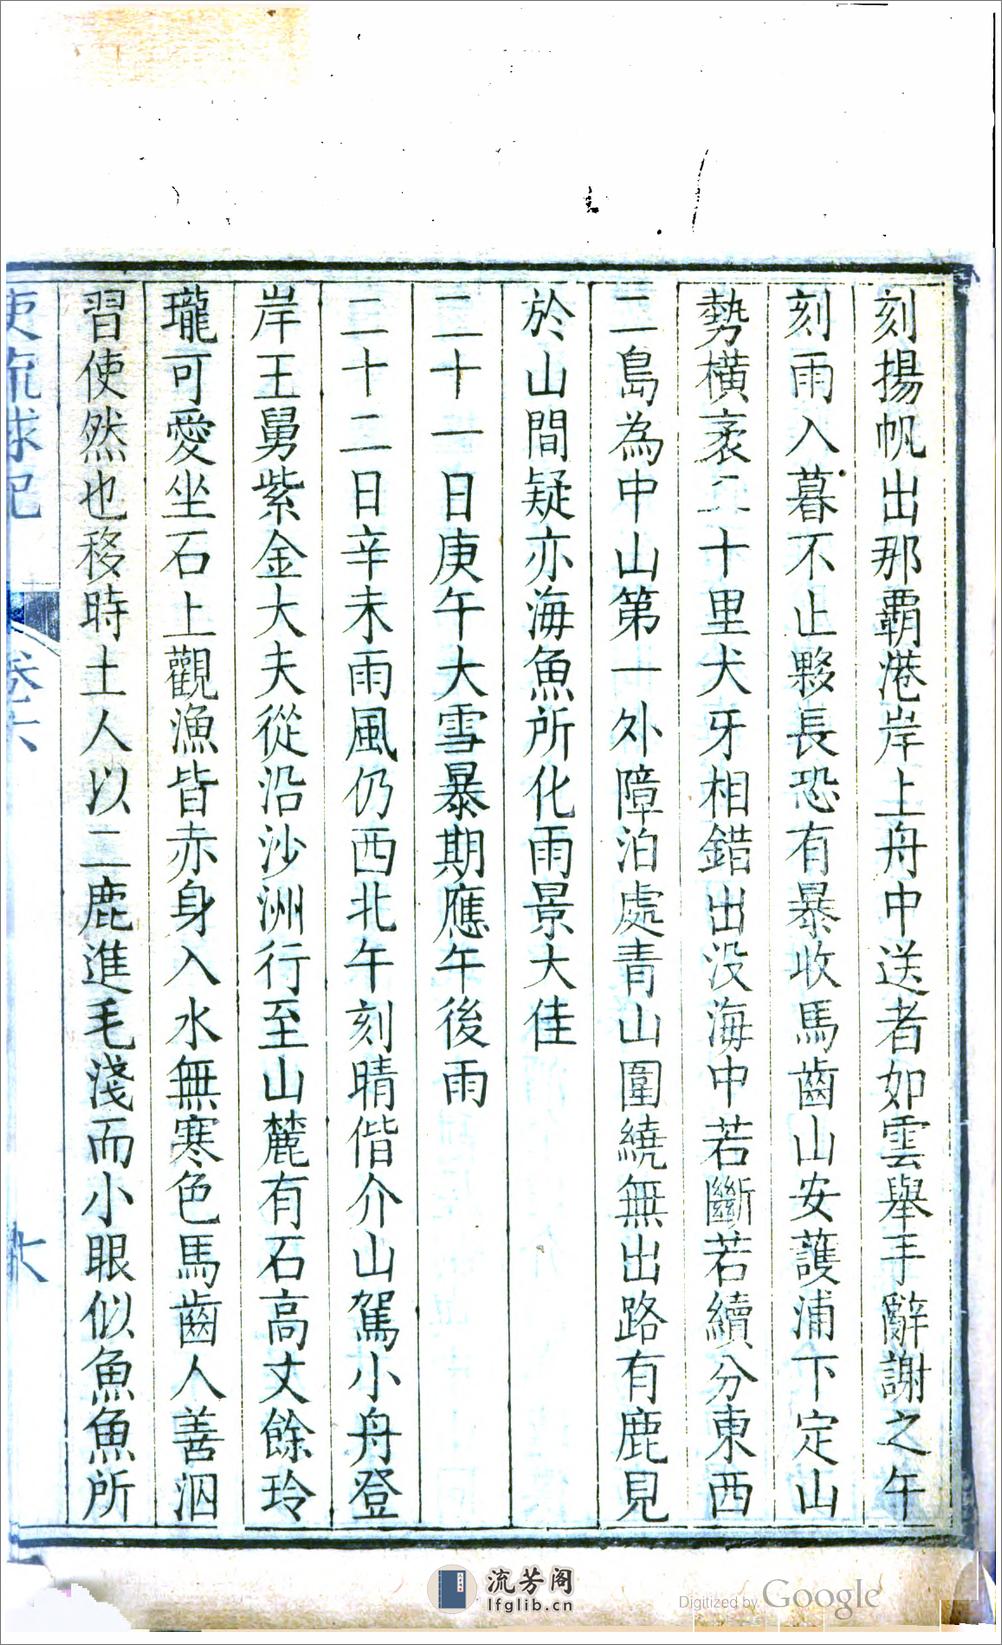 刻揚帆出那霸港岸上舟中送者如雲舉手辭謝之午
刻雨入暮不止夥長恐有暴收馬齒山安護浦下定山
勢橫袤二十里犬牙相錯出没海中若斷若續分東西
二島為中山第一外障泊處青山圍繞無出路有鹿見
於山間疑亦海魚所化雨景大佳
二十一日庚午大雪暴期應午後雨
二十二日辛未雨風仍西北午刻晴偕介山駕小舟登
岸王舅紫金大夫從沿沙洲行至山麓有石高丈餘玲
瓏可愛坐石上觀漁皆赤身入水無寒色馬齒人善泅
習使然也移時土人以二鹿進毛淺而小眼似魚魚所
使流球記 卷六
流芳閣
lfglib.cn
Digitized by Google